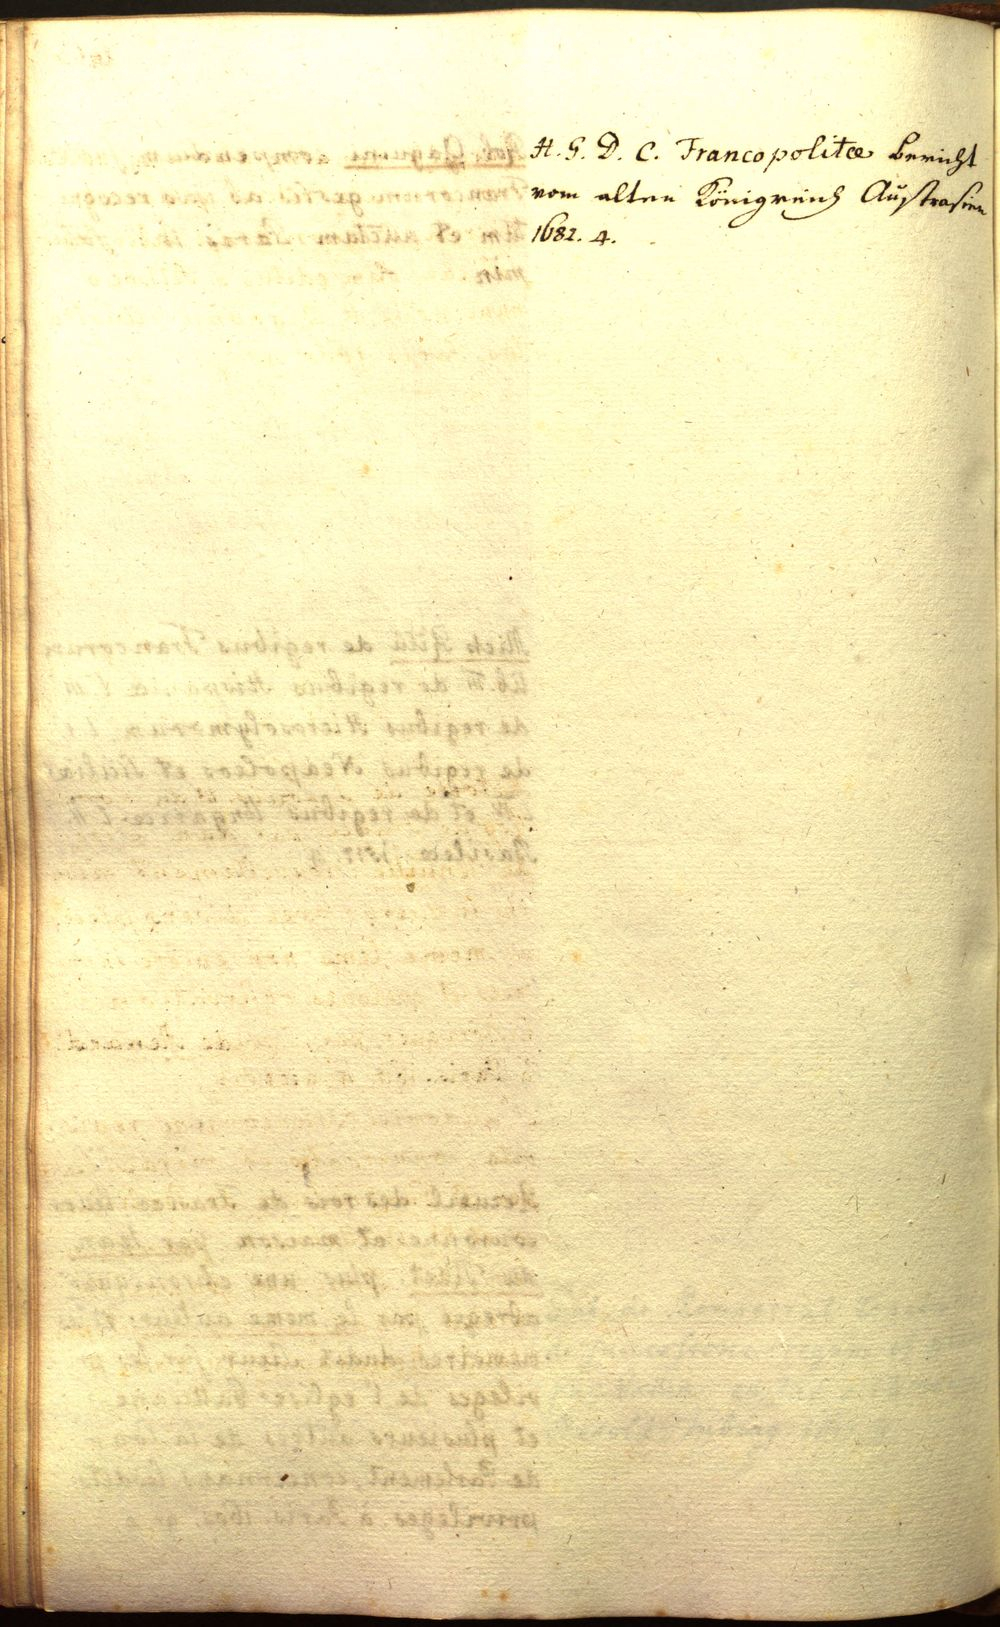 H. G. D. C. Francopolitæ Bericht
vom alten Königreich Austrasien
1682. 4.